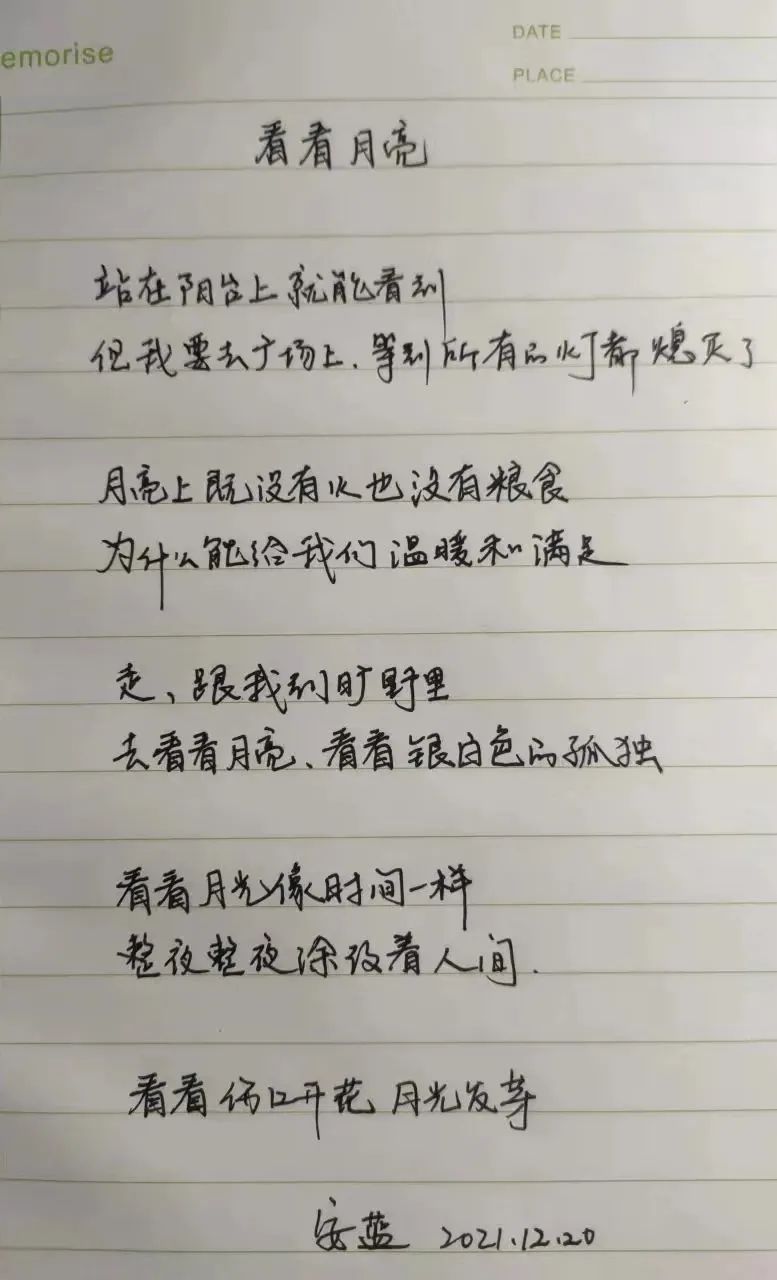 emorise
DATE
PLACE
看看月亮
站在阳台上就能看到
但我要去广场上、等到所有的灯都熄灭了
月亮上既没有火也没有粮食
为什么能给我们温暖和满足
走、跟我到旷野里
去看看月亮、看看银白色的孤独
看看月光像时间一样
整夜整夜涂改着人间.
看看伤口开花 月光发芽
安蓝 2021.12.20